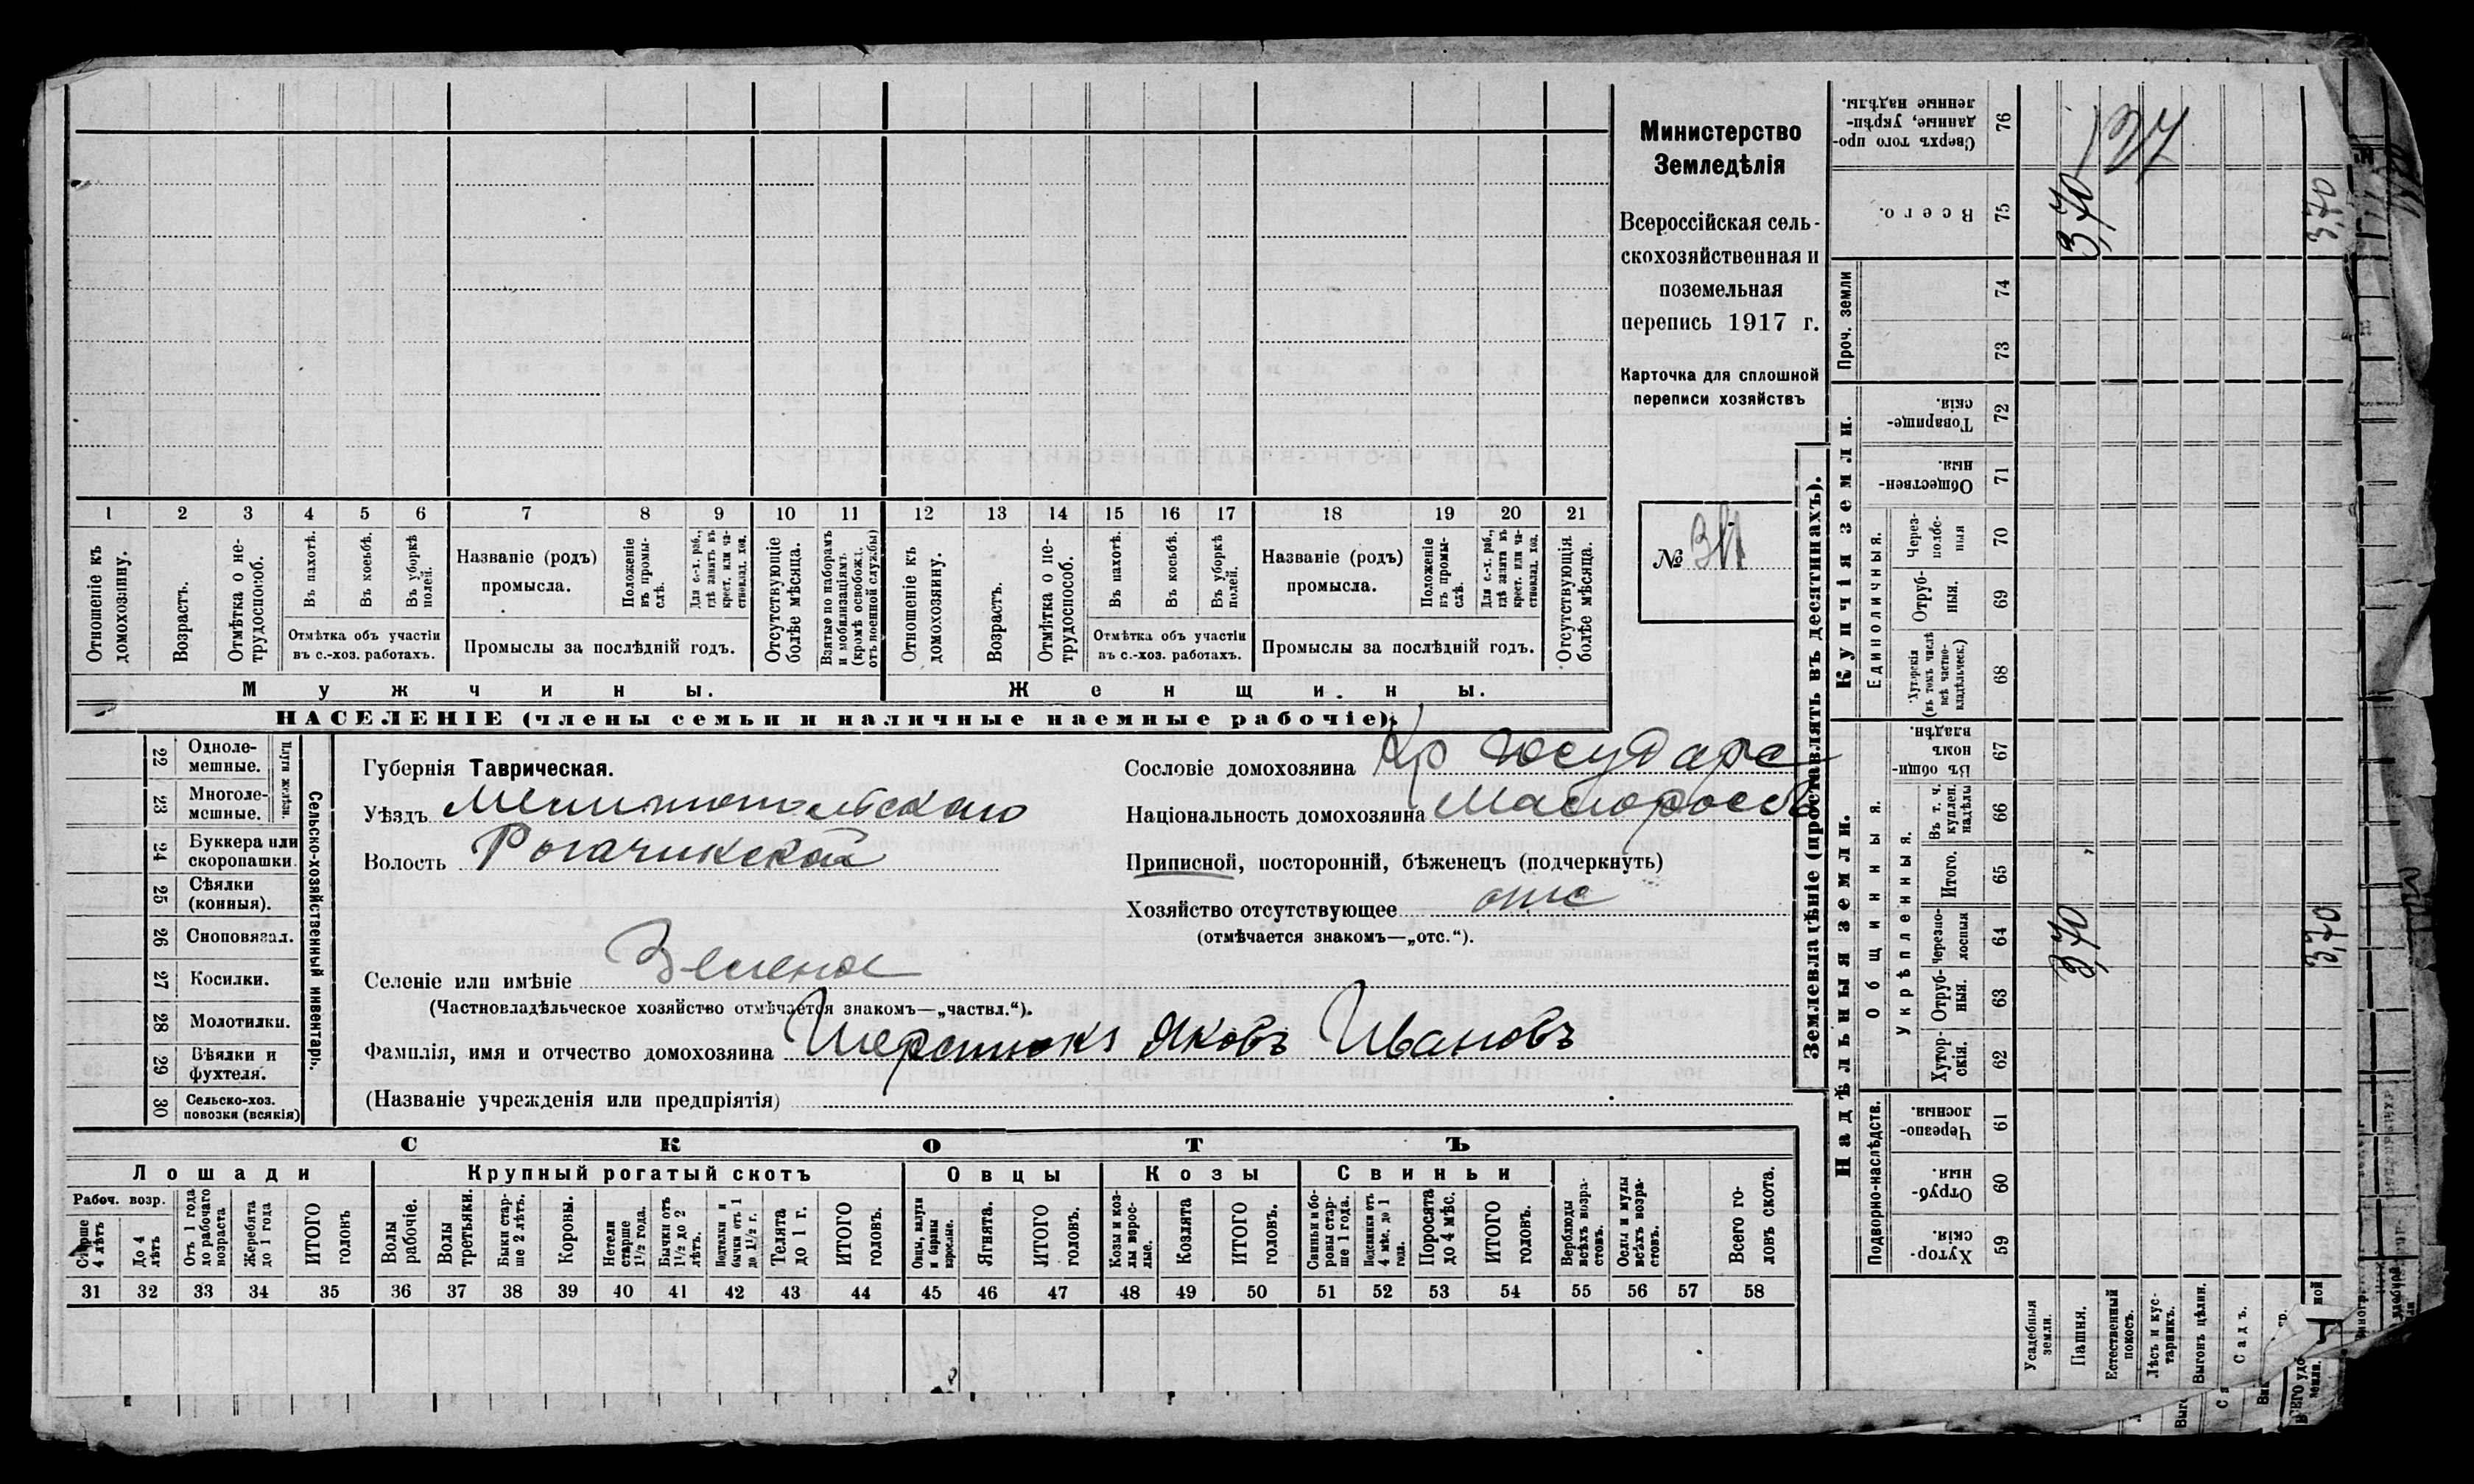 1 2 3 4 5 6 7 8 9 10 11 12 13 14 15 16 17 18 19 20 21
Отношеніе къ домохозяину.
Возрастъ.
Отмѣтка о не-
трудоспособ.
Въ пахотѣ.
Въ косьбѣ.
Въ уборкѣ
полей.
Отмѣтка объ участіи
въ с.-хоз. работахъ.
Названіе (родъ)
промысла.
Положеніе
въ промы-
слѣ.
Для с.-х. раб.,
гдѣ занятъ въ
крест. или ча-
стновлад. хоз.
Промыслы за послѣдній годъ.
Отсутствующіе
болѣе мѣсяца.
Взятые по наборамъ
и мобилизаціямъ
(кромѣ освобожд.
отъ военной службы)
Отношеніе къ
домохозяину.
Возрастъ.
Отмѣтка о не-
трудоспособ.
Въ пахотѣ.
Въ косьбѣ.
Въ уборкѣ
полей.
Отмѣтка объ участіи
въ с.-хоз. работахъ.
Названіе (родъ)
промысла.
Положеніе
въ промы-
слѣ.
Для с.-х. раб.,
гдѣ занята въ
крест. или ча-
стновлад. хоз.
Промыслы за послѣдній годъ.
Отсутствующія
болѣе мѣсяца.
Мужчины.
Женщины.
НАСЕЛЕНІЕ (члены семьи и наличные наемные рабочіе).
Министерство
Земледѣлія
Всероссійская сель-
скохозяйственная и
поземельная
перепись 1917 г.
Карточка для сплошной
переписи хозяйствъ
№
22 Одноле-
мешные.
23 Многоле-
мешные.
Плуги желѣзн.
24 Буккера или
скоропашки.
25 Сѣялки
(конныя).
26 Сноповязал.
27 Косилки.
28 Молотилки.
29 Вѣялки и
фухтеля.
30 Сельско-хоз.
повозки (всякія)
Сельско-хозяйственный инвентарь.
Губернія Таврическая.
Уѣздъ Мелитопольскаго
Волость Рогачикской
Селеніе или имѣніе Зелена
(Частновладѣльческое хозяйство отмѣчается знакомъ—„частвл.“).
Фамилія, имя и отчество домохозяина Шерстюкъ Яковъ Ивановъ
(Названіе учрежденія или предпріятія)
Сословіе домохозяина Кр государс
Національность домохозяина Малоросс
Приписной, посторонній, бѣженецъ (подчеркнуть)
Хозяйство отсутствующее отс
(отмѣчается знакомъ—„отс.“).
СКОТЪ
Лошади
Крупный рогатый скотъ
Овцы
Козы
Свиньи
Рабоч. возр.
Старше
4 лѣтъ
До 4
лѣтъ
Отъ 1 года
до рабочаго
возраста
Жеребята
до 1 года
ИТОГО
головъ
Волы
рабочіе.
Волы
третьяки.
Быки стар-
ше 2 лѣтъ.
Коровы.
Нетели
старше
1½ года.
Бычки отъ
1½ до 2
лѣтъ.
Подтелки и
бычки отъ 1
до 1½ г.
Телята
до 1 г.
ИТОГО
головъ.
Овцы, валухи
и бараны
взрослые.
Ягнята.
ИТОГО
головъ.
Козы и коз-
лы взрос-
лые.
Козлята
ИТОГО
головъ.
Свиньи и бо-
ровы стар-
ше 1 года.
Подсвинки отъ
4 мѣс. до 1
года.
Поросята
до 4 мѣс.
ИТОГО
головъ.
Верблюды
всѣхъ возра-
стовъ.
Ослы и мулы
всѣхъ возра-
стовъ.
Всего го-
ловъ скота.
31 32 33 34 35 36 37 38 39 40 41 42 43 44 45 46 47 48 49 50 51 52 53 54 55 56 57 58
Землевладѣніе (проставлять въ десятинахъ).
Надѣльныя земли.
Купчія земли.
Проч. земли
Подворно-наслѣдств.
Общинныя.
Укрѣпленныя.
Единоличныя.
Сверхъ того про-
данные, укрѣп-
ленные надѣлы.
76
Всего.
75 3,70 3,70
74
73
Товарище-
скія.
72
Обществен-
ныя.
71
Через-
полос-
ныя
70
Отруб-
ныя.
69
Хуторскія
(въ томъ числѣ
всѣ частно-
владѣльческ.)
68
Въ общин-
номъ
владѣн.
67
Въ т. ч.
куплен.
надѣлы
66
Итого.
65
Черезпо-
лосныя
64 3,70 3,70
Отруб-
ныя.
63
Хутор-
скія.
62
Черезпо-
лосныя.
61
Отруб-
ныя.
60
Хутор-
скія.
59
Усадебныя
земли.
Пашня.
Естественный
покосъ.
Лѣсъ и кус-
тарникъ.
Выгонъ цѣлин.
Садъ.